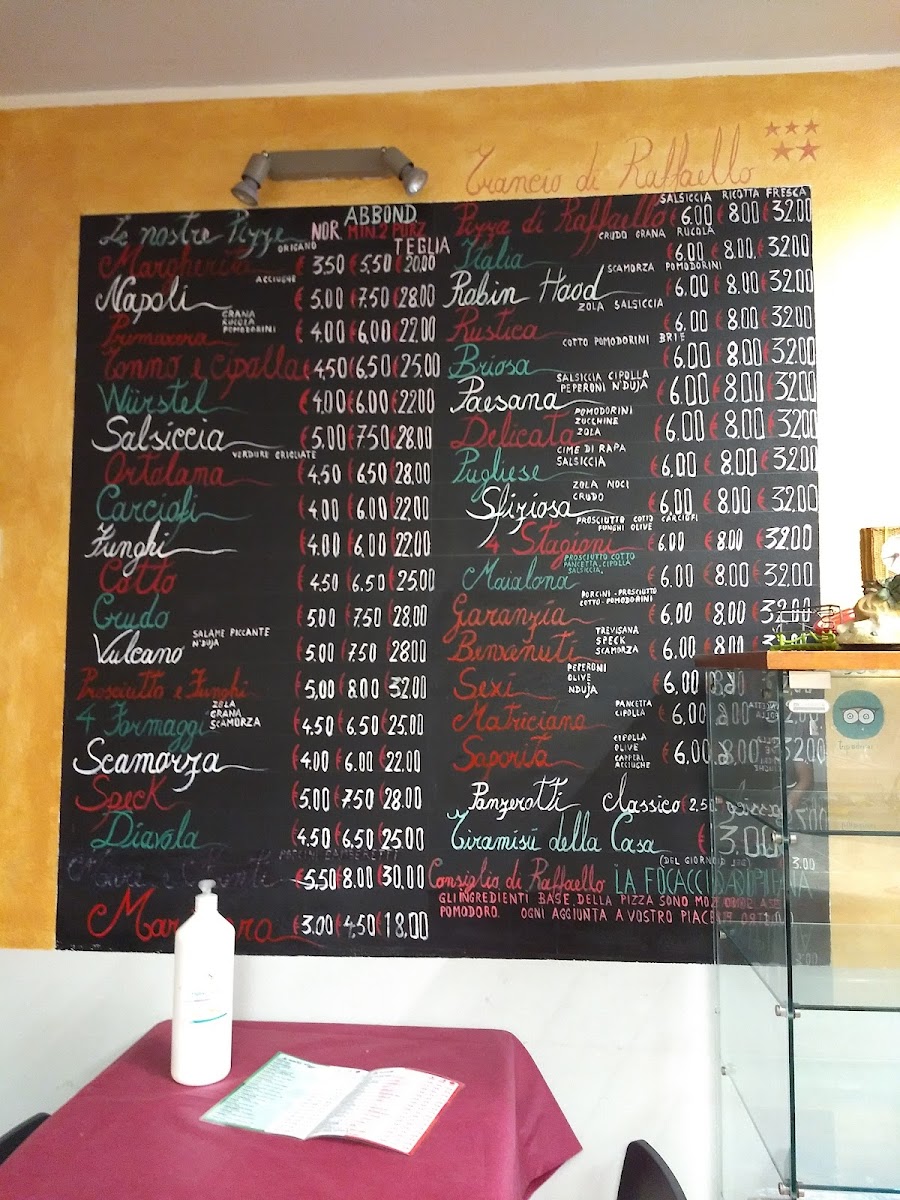 Trancio di Raffaello
Le nostre Pizze NOR. ABBOND. MIN.2 PORZ TEGLIA
Margherita ORIGANO € 3,50 € 5,50 € 20,00
Napoli ACCIUGHE € 5,00 € 7.50 € 28.00
Primavera GRANA RUCOLA POMODORINI € 4.00 € 6,00 € 22.00
Tonno e cipolla € 4,50 € 6,50 € 25,00
Würstel € 4.00 € 6.00 € 22.00
Salsiccia € 5,00 € 7.50 € 28.00
Ortolana VERDURE GRIGLIATE € 4.50 € 6,50 € 28.00
Carciofi € 4,00 € 6,00 € 22,00
Funghi € 4.00 € 6,00 € 22,00
Cotto € 4,50 € 6.50 € 25,00
Crudo € 5,00 € 7,50 € 28,00
Vulcano SALAME PICCANTE N'DUJA € 5,00 € 7,50 € 28,00
Prosciutto e Funghi € 5,00 € 8.00 € 32.00
4 Formaggi ZOLA GRANA SCAMORZA € 4,50 € 6,50 € 25,00
Scamorza € 4.00 € 6.00 € 22.00
Speck € 5,00 € 7,50 € 28.00
Diavola € 4,50 € 6,50 € 25.00
€ 5,50 € 8.00 € 30,00
€ 3.00 € 4,50 € 18,00
Pizza di Raffaello SALSICCIA RICOTTA FRESCA € 6,00 € 8,00 € 32,00
Italia CRUDO GRANA RUCOLA € 6,00 € 8,00 € 32.00
Robin Hood SCAMORZA POMODORINI € 6,00 € 8,00 € 32,00
Rustica ZOLA SALSICCIA € 6,00 € 8.00 € 32,00
Briosa COTTO POMODORINI BRIE € 6,00 € 8.00 € 32,00
Paesana SALSICCIA CIPOLLA PEPERONI N'DUJA € 6,00 € 8.00 € 32,00
Delicata POMODORINI ZUCCHINE ZOLA € 6,00 € 8.00 € 32,00
Pugliese CIME DI RAPA SALSICCIA € 6,00 € 8.00 € 32,00
Sfiziosa ZOLA NOCI CRUDO € 6,00 € 8.00 € 32,00
4 Stagioni PROSCIUTTO COTTO CARCIOFI FUNGHI OLIVE € 6.00 € 8.00 € 32.00
Maialona PROSCIUTTO COTTO PANCETTA, CIPOLLA SALSICCIA, € 6,00 € 8.00 € 32.00
Garanzia PORCINI-PROSCIUTTO COTTO-POMODORINI € 6,00 € 8.00 € 32.00
Benvenuti TREVISANA SPECK SCAMORZA € 6,00 € 8.00
Sexi PEPERONI OLIVE NDUJA € 6,00
Matriciana PANCETTA CIPOLLA € 6,00 8,00 32,00
Saporita CIPOLLA OLIVE CAPPERI ACCIUGHE € 6,00 8,00 32,00
Panzerotti classico € 2,50
Tiramisú della Casa € 3.00
Consiglio di Raffaello (DEL GIORNO LA FOCACCIA
GLI INGREDIENTI BASE DELLA PIZZA SONO
POMODORO. OGNI AGGIUNTA A VOSTRO